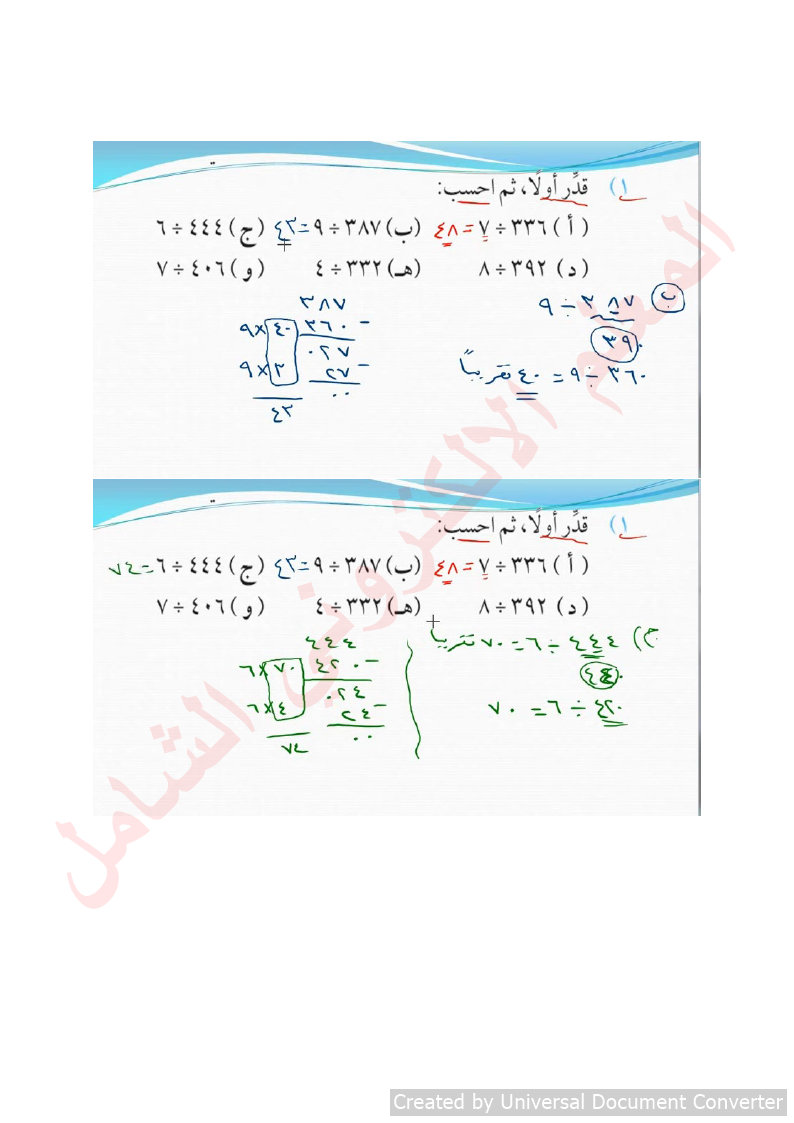 ١) قدِّر أولًا، ثم احسب:
(أ) ٣٣٦ ÷ ٧ = ٤٨ (ب) ٣٨٧ ÷ ٩ = ٤٣ (ج) ٤٤٤ ÷ ٦
(د) ٣٩٢ ÷ ٨ (هـ) ٣٣٢ ÷ ٤ (و) ٤٠٦ ÷ ٧
ب ٣٨٧ ÷ ٩
٣٩٠
٣٦٠ ÷ ٩ = ٤٠ تقريباً
٣٨٧
٩ × ٤٠ ٣٦٠ −
٠٢٧
٩ × ٣ ٢٧ −
٠٠
٤٣
١) قدِّر أولًا، ثم احسب:
(أ) ٣٣٦ ÷ ٧ = ٤٨ (ب) ٣٨٧ ÷ ٩ = ٤٣ (ج) ٤٤٤ ÷ ٦ = ٧٤
(د) ٣٩٢ ÷ ٨ (هـ) ٣٣٢ ÷ ٤ (و) ٤٠٦ ÷ ٧
ج) ٤٤٤ ÷ ٦ = ٧٠ تقريباً
٤٢٠ ÷ ٦ = ٧٠
٤٤٤
٦ × ٧٠ ٤٢٠ −
٠٢٤
٦ × ٤ ٢٤ −
٠٠
٧٤
المعلم الالكتروني الشامل
Created by Universal Document Converter